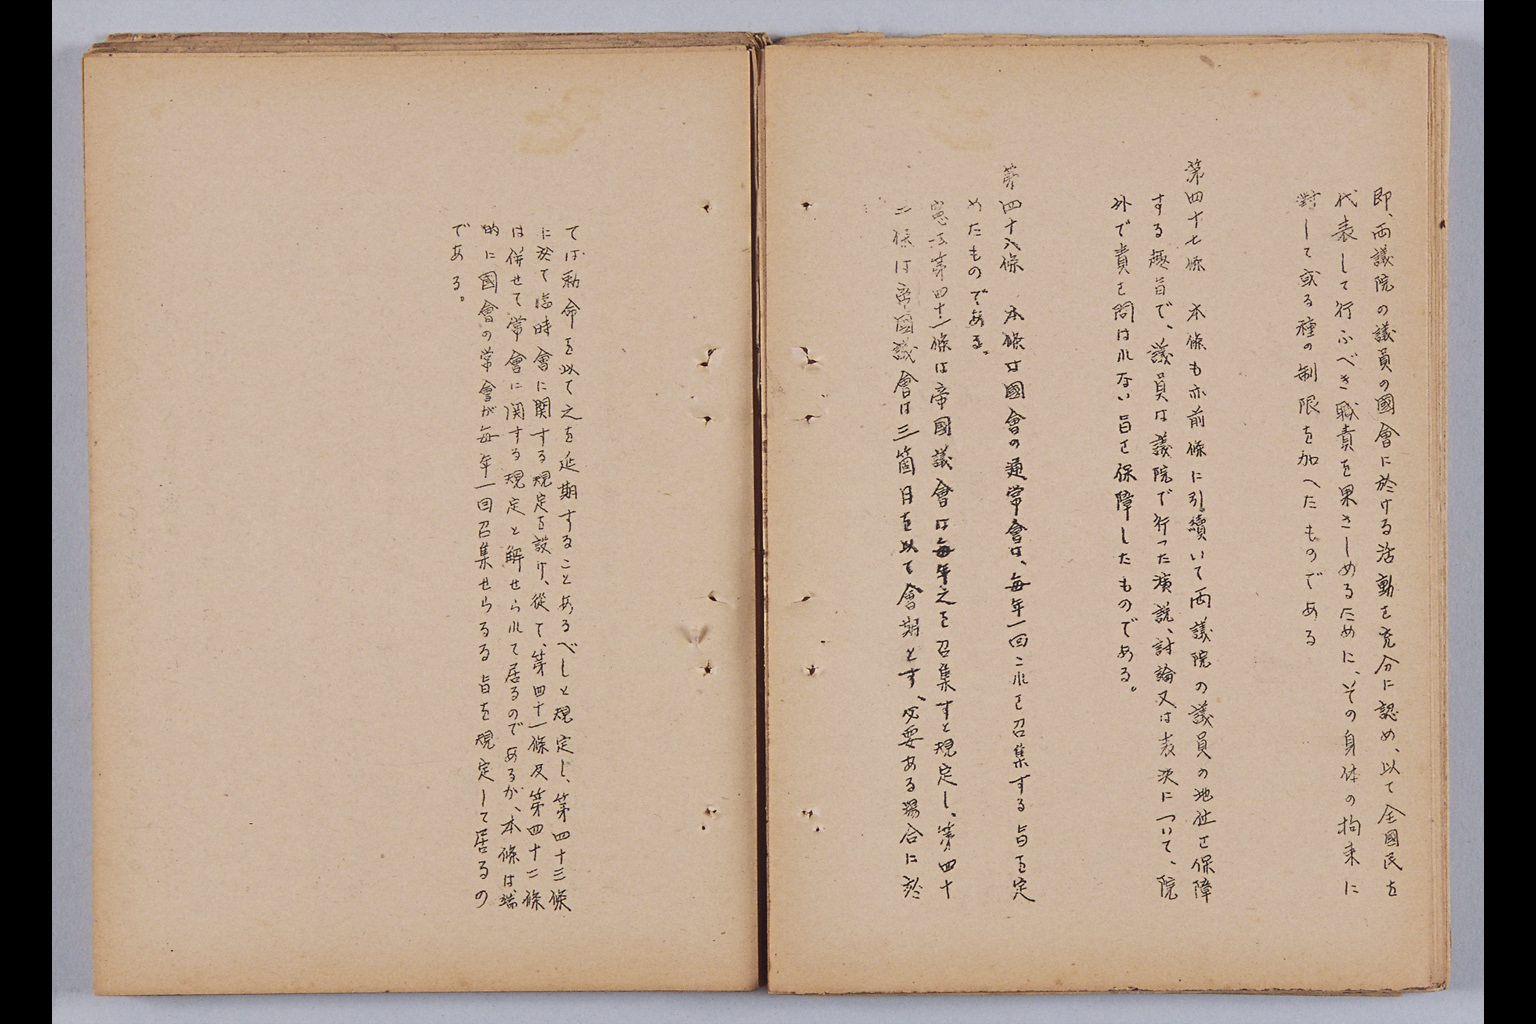 即、両議院の議員の國會に於ける活動を充分に認め、以て全國民を
代表して行ふべき職責を果さしめるために、その身体の拘束に
對して或る種の制限を加へたものである
第四十七條　本條も亦前條に引續いて両議院の議員の地位を保障
する趣旨で、議員は議院で行った演説、討論又は表決について、院
外で責を問はれない旨を保障したものである。
第四十八條　本條は國會の通常會は、毎年一回これを召集する旨を定
めたものである。
憲法第四十一條は帝國議會は毎年之を召集すと規定し、第四十
二條は帝國議會は三箇月を以て會期とす、必要ある場合に於
ては勅命を以て之を延期することあるべしと規定し、第四十三條
に於て臨時會に関する規定を設け、從て、第四十一條及第四十二條
は併せて常會に関する規定と解せられて居るのであるが、本條は端
的に國會の常會が毎年一回召集せらるる旨を規定して居るの
である。